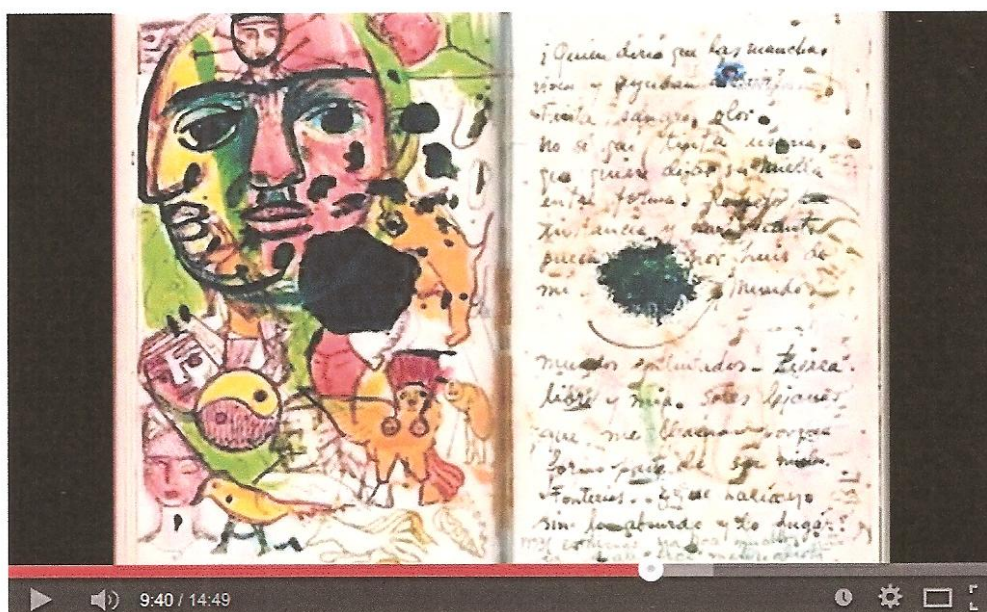 ¿Quien diria que las manchas
viven y ayudan a vivir?
Tinta, sangre, olor.
no sé que tinta usaria,
que quiere dejar su huella
en tal forma.
instancia y
por huir de
mi mundo
mundos entintados - tierra
libre y mia. Soles lejanos
que me llaman porque
formo parte de su nucleo.
Tonterias. ¿Que haria yo
sin lo absurdo y lo fugaz?
9:40 / 14:49